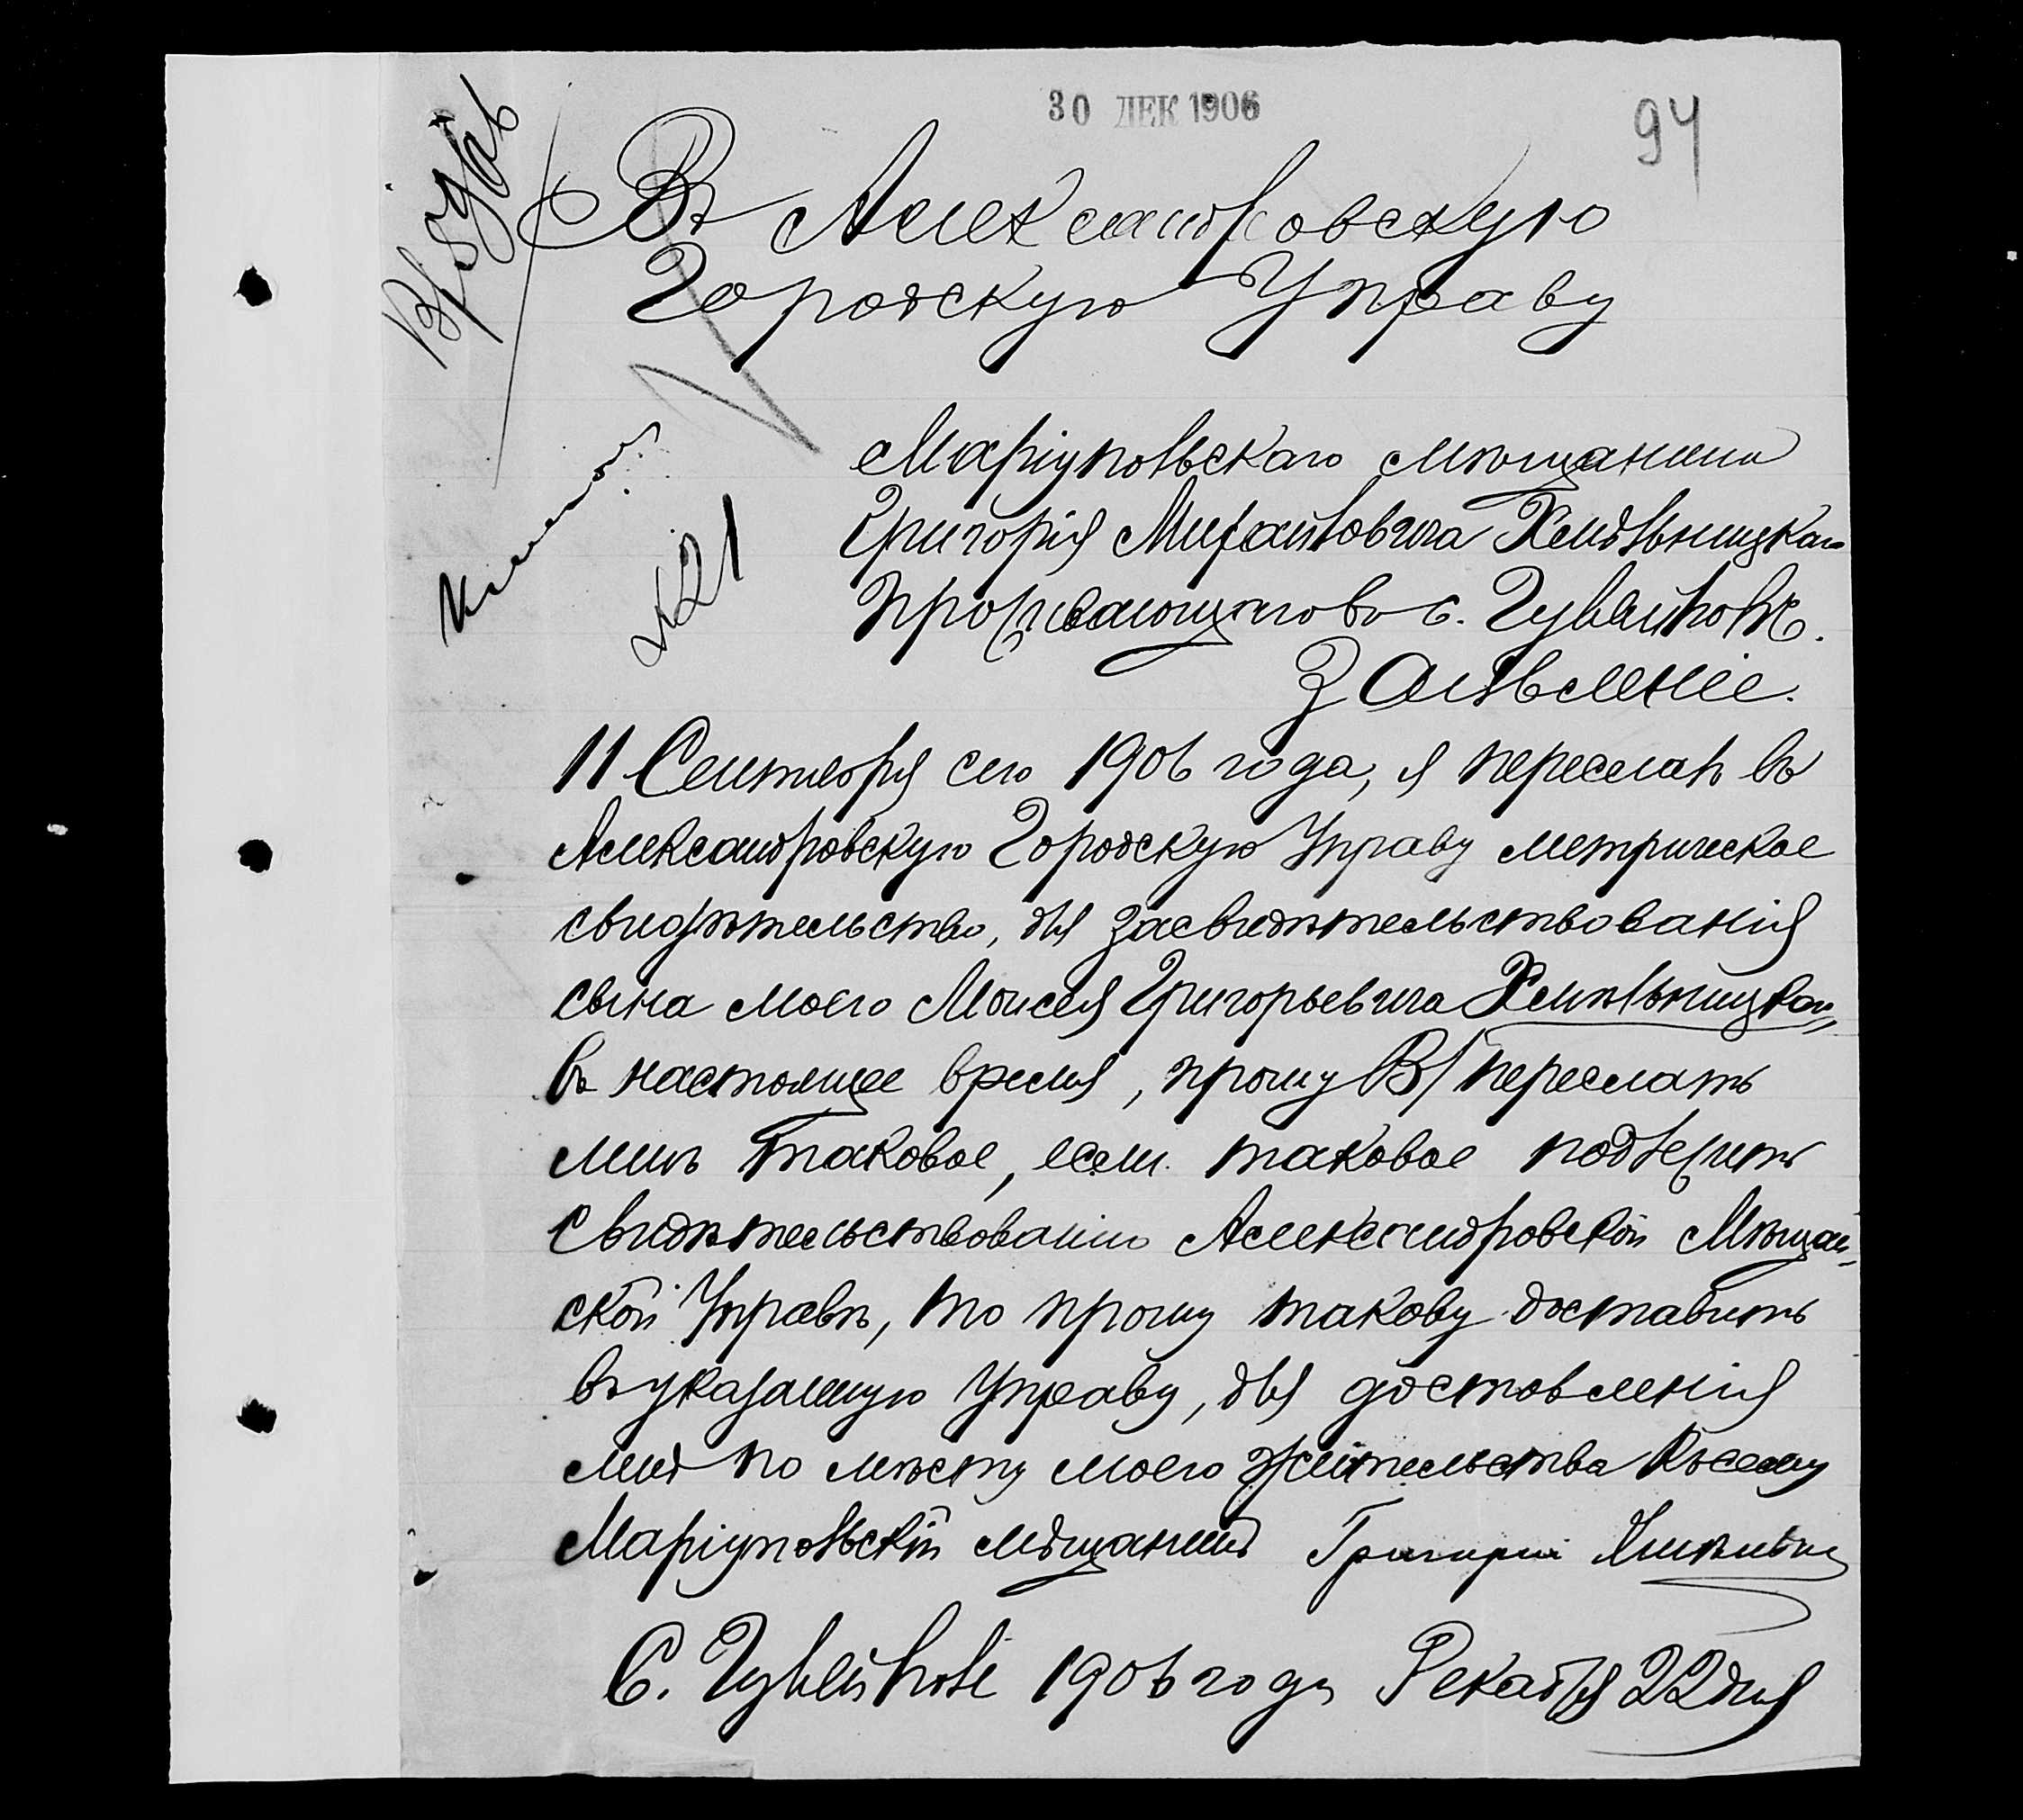 30 ДЕК 1906
94
Въ Александровскую
Городскую Управу
Маріупольскаго мѣщанина
Григорія Михайловича Хмѣльницкаго
проживающаго во с. Гуляйполѣ.
Заявленіе.
№21
11 Сентября сего 1906 года, я переслалъ въ
Александровскую Городскую Управу метрическое
свидѣтельство, для засвидѣтельствованія
сына моего Моисея Григорьевича Хмѣльницкаго
въ настоящее время, прошу В/ переслать
мнѣ таковое, если таковое подлежитъ
свидѣтельствованію Александровской Мѣщан-
ской Управѣ, то прошу такову доставить
въ указанную Управу, для доставленія
мнѣ по мѣсту моего жительства Къ сему
Маріупольскій мѣщанинъ Григорій
С. Гуляйполе 1906 года Декабря 22 дня